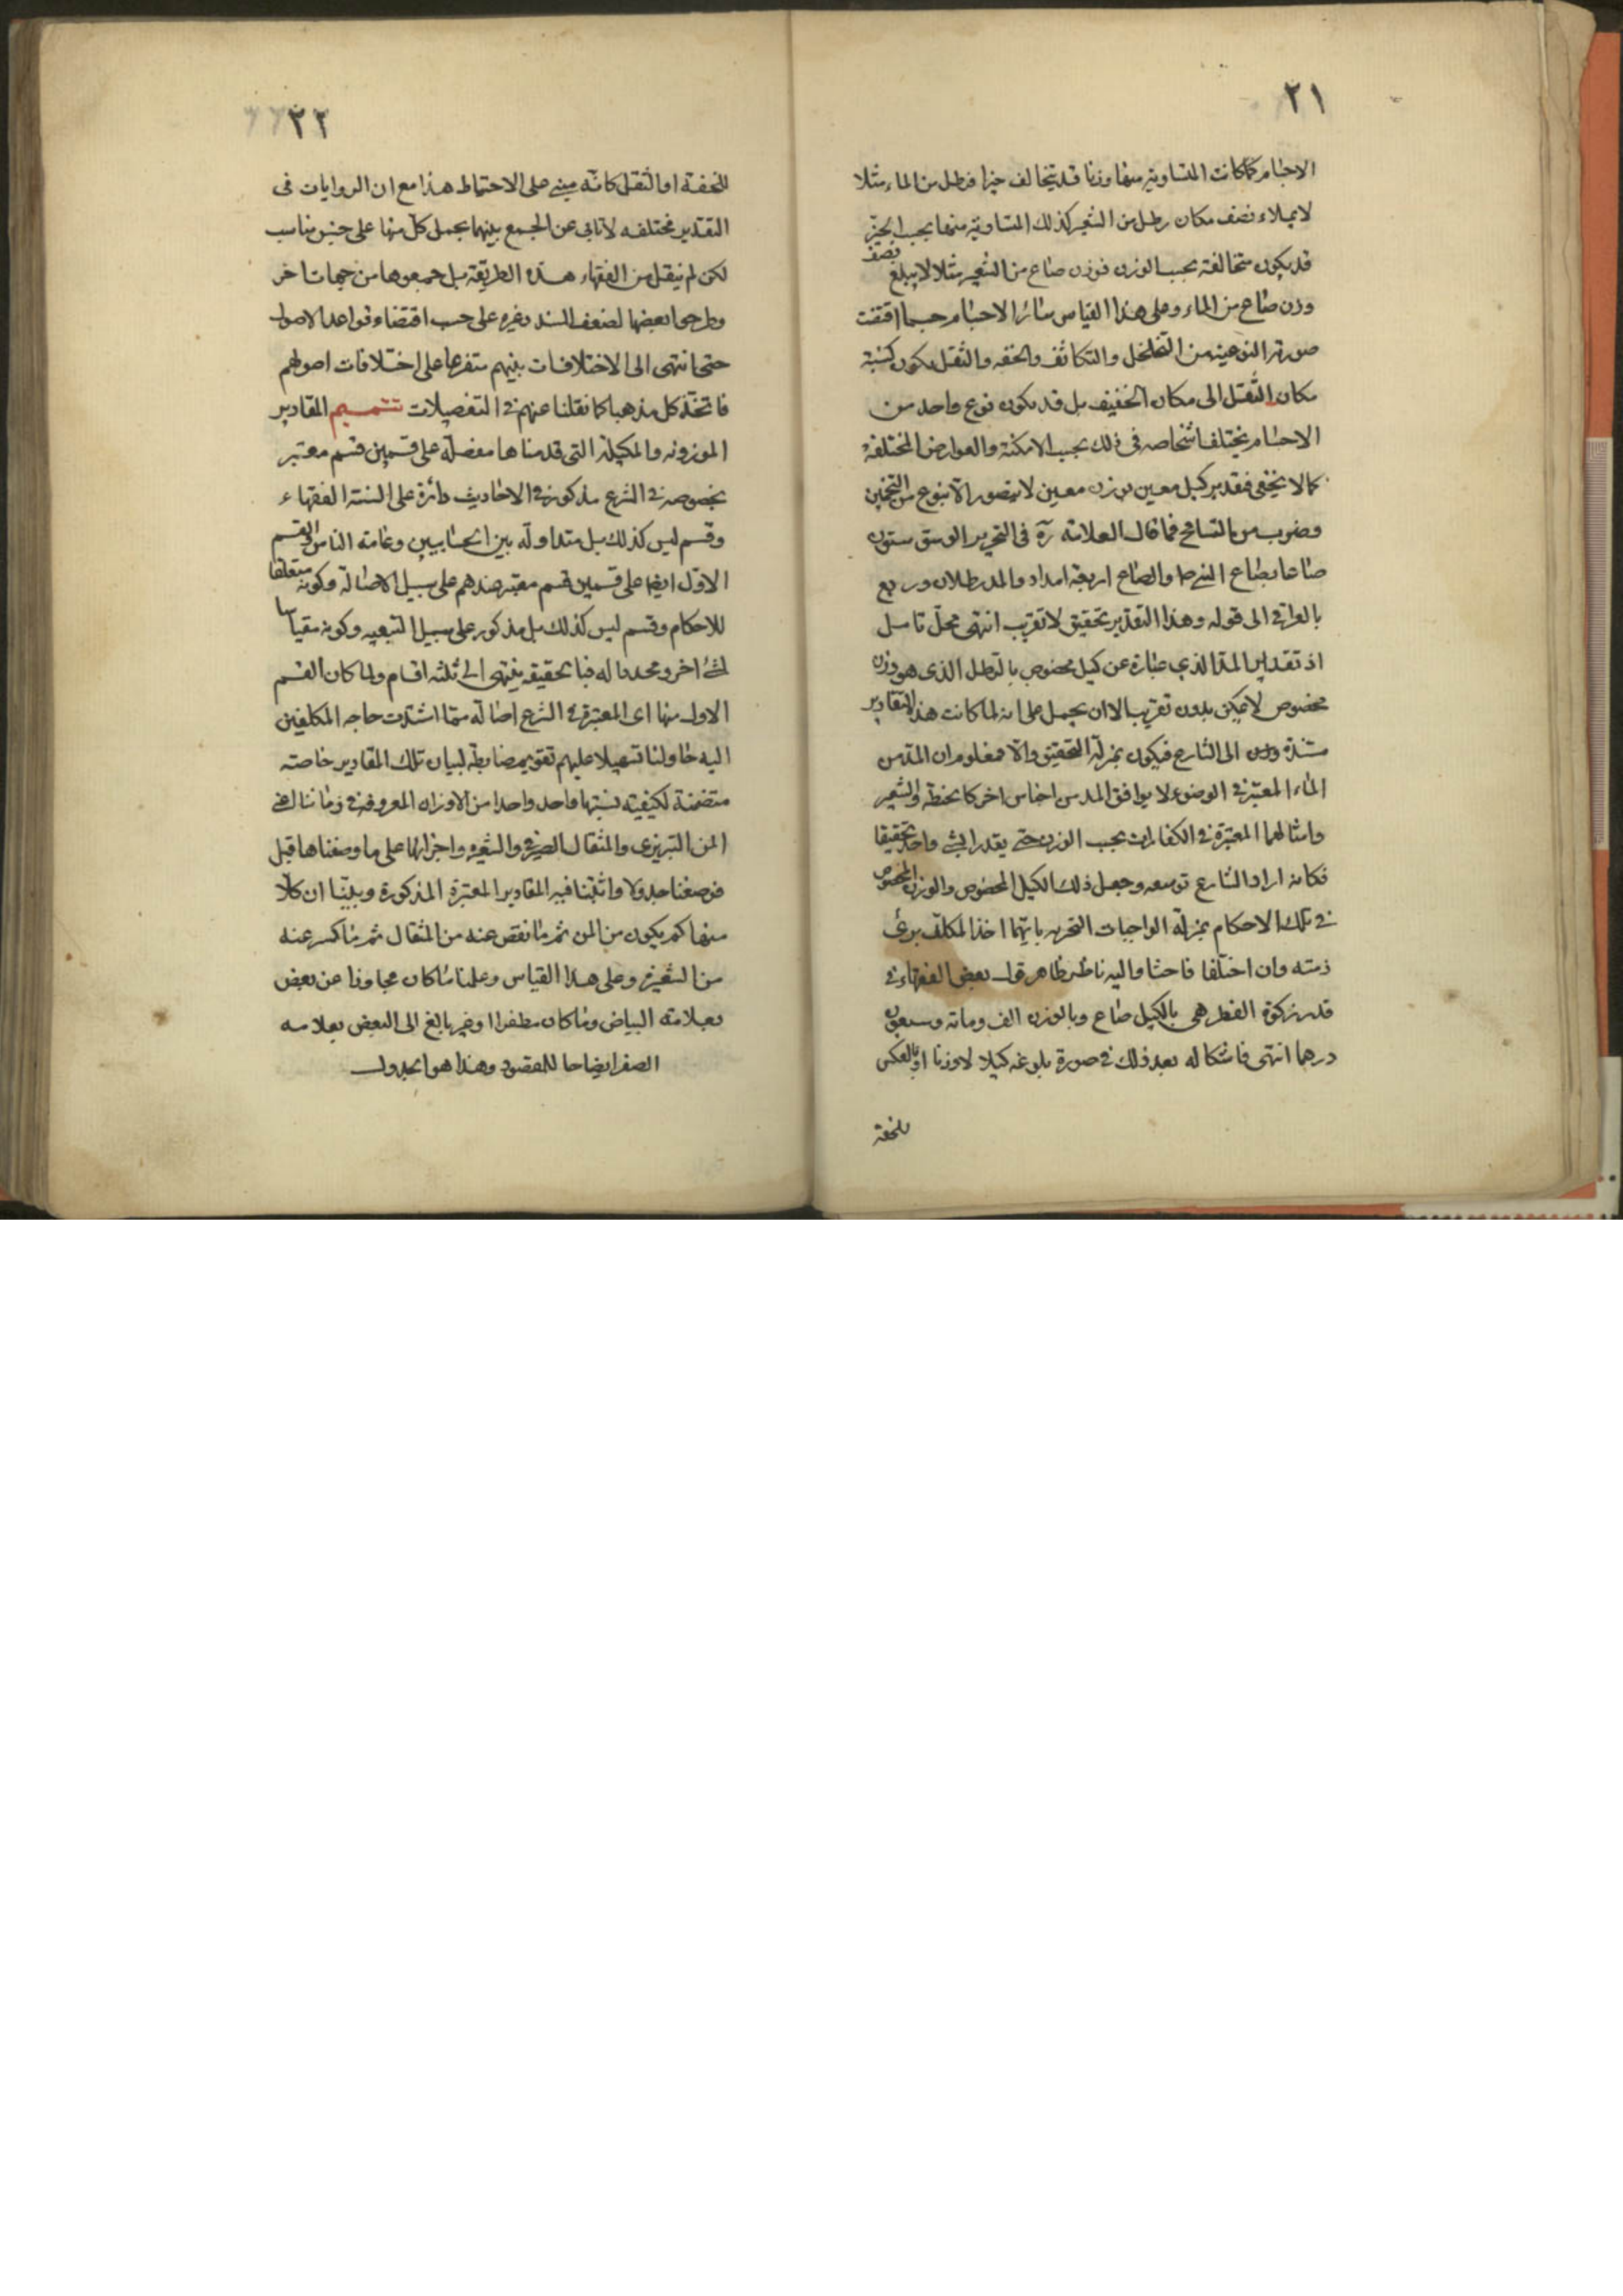 ٢١
الاجسام كما كانت المتساوية منها وزنا قد يتخالف حيزا فرطل من الماء مثلا
لا يملاء نصف مكان رطل من الشعير كذلك المتساوية منها بحسب الحيز
قد يكون متخالفة بحسب الوزن فوزن صاع من الشعير مثلا لا يبلغ نصف
وزن صاع من الماء وعلى هذا القياس سائر الاجسام حسبما اقتضت
صورتها النوعية من التخلخل والتكاثف والخفه والثقل يكون كنسبة
مكان الثقيل الى مكان الخفيف بل قد يكون نوع واحد من
الاجسام يختلف اشخاصه فى ذلك بحسب الامكنة والعوارض المختلفة
كما لا يخفى فتقدير كيل معين بوزن معين لا يتصور الا بنوع من التخمين
وضرب من التسامح فما قال العلامة ره فى التحرير الوسق ستون
صاعا بصاع النبى والصاع اربعة امداد والمد رطلان وربع
بالعراقى الى قوله وهذا التقدير تحقيق لا تقريب انتهى محل تامل
اذ تقدير المد الذي عبارة عن كيل مخصوص بالرطل الذى هو وزن
مخصوص لا يمكن بدون تقريب الا ان يحمل على انه لما كانت هذه التقادير
الى الشارع فيكون بمنزلة التحقيق والا فمعلوم ان المد من
الماء المعتبر فى الوضوء لا يوافق المد من اجناس اخر كالحنطة والشعير
وامثالهما المعتبرة فى الكفارات بحسب الوزن حتى يقدر بشئ واحد تحقيقا
فكانه اراد الشارع توسعه وجعل ذلك الكيل المخصوص والوزن المخصوص
فى تلك الاحكام بمنزلة الواجبات التخييريه بايهما اخذ المكلف برئ
ذمته وان اختلفا فاحشا واليه ناظر ظاهر قول بعض الفقهاء فى
قدر زكوة الفطر هى بالكيل صاع وبالوزن الف ومائة وسبعون
درهما انتهى فاشكاله بعد ذلك فى صورة بلوغه كيلا لا وزنا او بالعكس
للخفة
٢٢
للخفة او الثقل كانه مبنى على الاحتياط هذا مع ان الروايات فى
التقدير مختلفه لا تابى عن الجمع بينهما بحمل كل منها على جنس مناسب
لكن لم ينقل من الفقهاء هذه الطريقة بل جمعوها من جهات اخر
وطرحوا بعضها لضعف السند وغيره على حسب اقتضاء قواعد الاصول
حتى انتهى الى الاختلافات بينهم متفرعا على اختلافات اصولهم
فاتخذ كل مذهبا كما نقلنا عنهم فى التفصيلات تتميم المقادير
الموزونه والمكيلة التى قدمناها مفصلة على قسمين قسم معتبر
بخصوصه فى الشرع مذكور فى الاحاديث دائرة على السنة الفقهاء
وقسم ليس كذلك بل متداولة بين الحسابيين وعامة الناس والقسم
الاول ايضا على قسمين قسم معتبر عندهم على سبيل الاصالة وكونه متعلقا
للاحكام وقسم ليس كذلك بل مذكور على سبيل التبعيه وكونه مقياسا
لشئ اخر ومحددا له فبالحقيقه ينتهى الى ثلثة اقسام ولما كان القسم
الاول منها اى المعتبر فى الشرع اصالة مما اشتدت حاجه المكلفين
اليه حاولنا تسهيلا عليهم تقويم ضابطة لبيان تلك المقادير خاصته
متضمنة لكيفية نسبتها واحد واحدا من الاوزان المعروفة فى زماننا اعنى
المن التبريزى والمثقال الصيرفى والشعيره واجزائها على ما وصفناها قبل
فوضعنا جدولا واثبتنا فيه المقادير المعتبرة المذكورة وبينا ان كلا
منها كم يكون من المن ثم ما نقص عنه من المثقال ثم ما كسر عنه
من الشعيرة وعلى هذا القياس وعلمنا ما كان مجاوزا عن بعض
بعلامته البياض وما كان مطفرا او غير بالغ الى البعض بعلامه
الصفر ايضاحا للمقصود وهذا هو الجدول